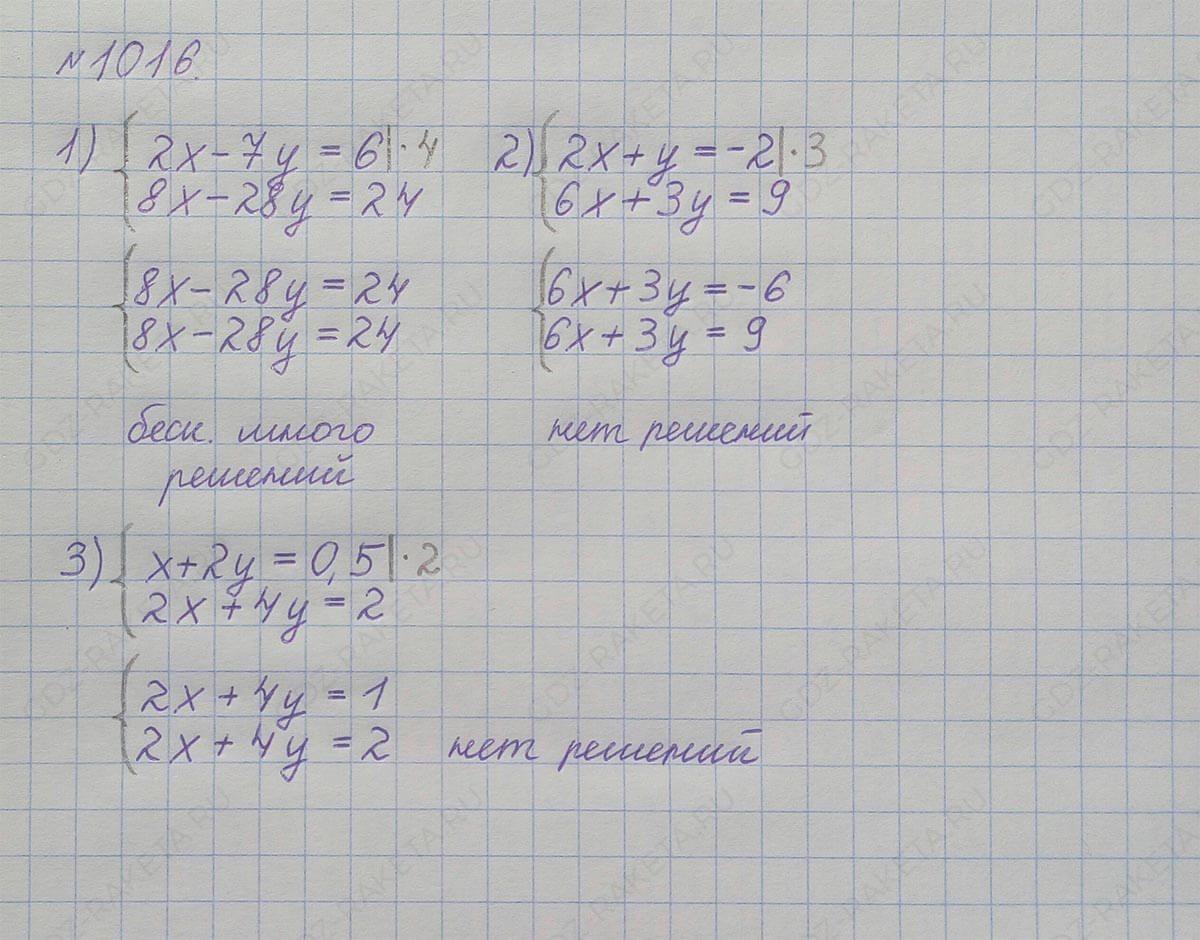 №1016.
1) { 2x-7y=6|·4
8x-28y=24
{ 8x-28y=24
8x-28y=24
беск. много
решений
2) { 2x+y=-2|·3
6x+3y=9
{ 6x+3y=-6
6x+3y=9
нет решений
3) { x+2y=0,5|·2
2x+4y=2
{ 2x+4y=1
2x+4y=2 нет решений
GDZ-RAKETA.RU